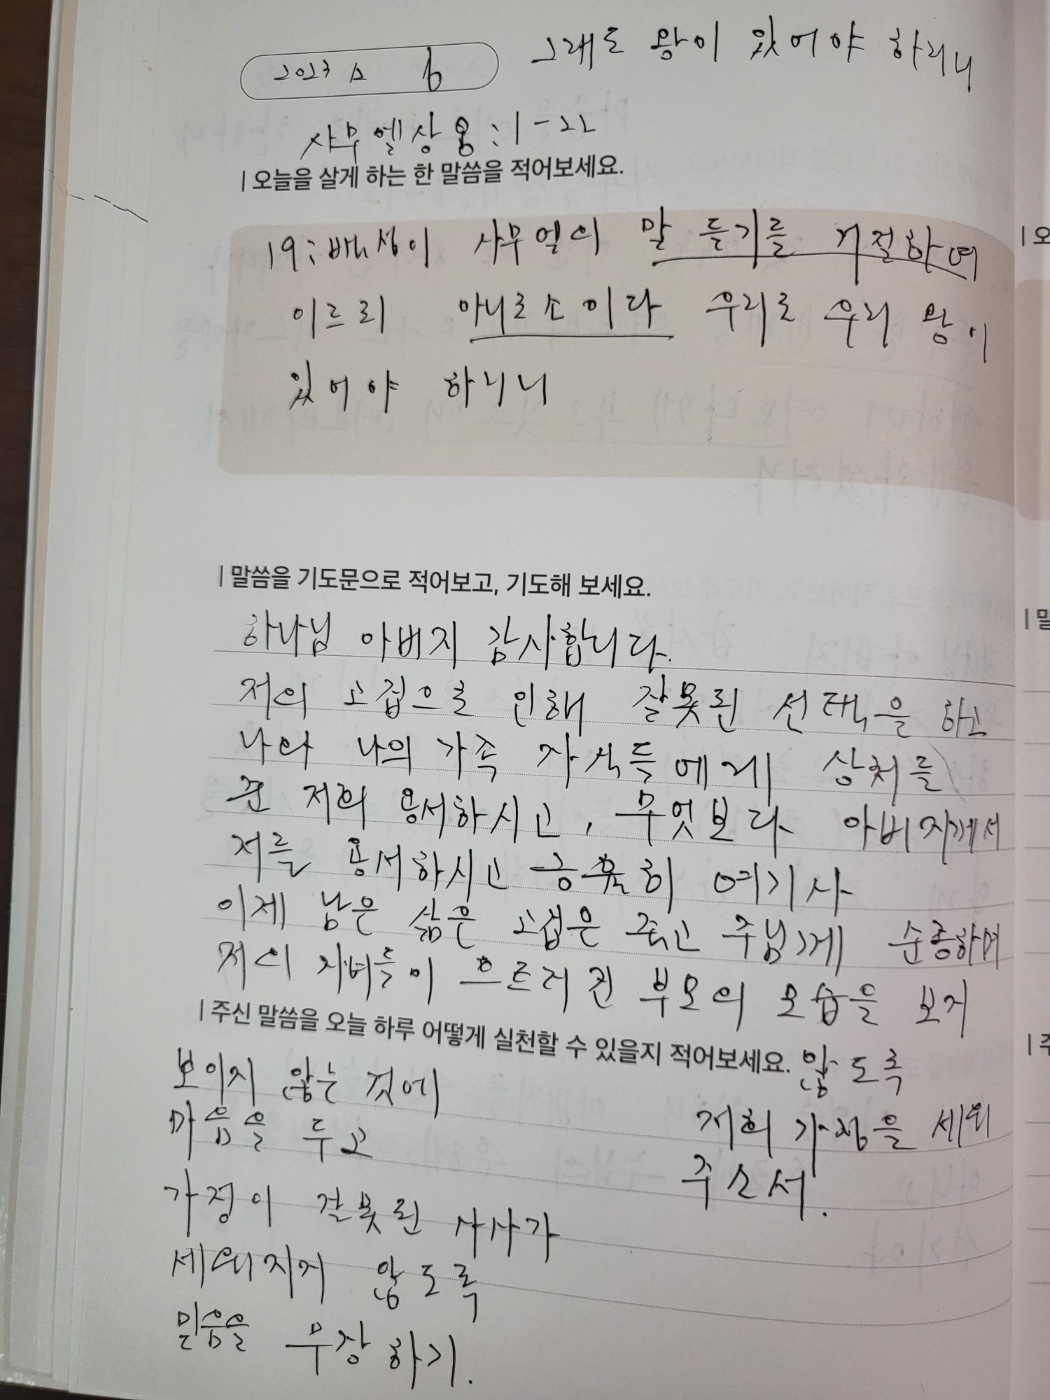 2023 6
그래도 왕이 있어야 하리니
사무엘상 8:1-22
오늘을 살게 하는 한 말씀을 적어보세요.
19: 백성이 사무엘의 말 듣기를 거절하여
이르되 아니로소이다 우리로 우리 왕이
있어야 하리니
말씀을 기도문으로 적어보고, 기도해 보세요.
하나님 아버지 감사합니다.
저의 고집으로 인해 잘못된 선택을 하고
나와 나의 가족 자식들에게 상처를
준 저희 용서하시고, 무엇보다 아버지께서
저를 용서하시고 긍휼히 여기사
이제 남은 삶은 고집은 죽고 주님께 순종하며
저의 자녀들이 흐트러진 부모의 모습을 보지
않도록
저희 가정을 세워
주소서.
주신 말씀을 오늘 하루 어떻게 실천할 수 있을지 적어보세요.
보이지 않는 것에
마음을 두고
가정이 잘못된 사사가
세워지지 않도록
믿음을 무장하기.